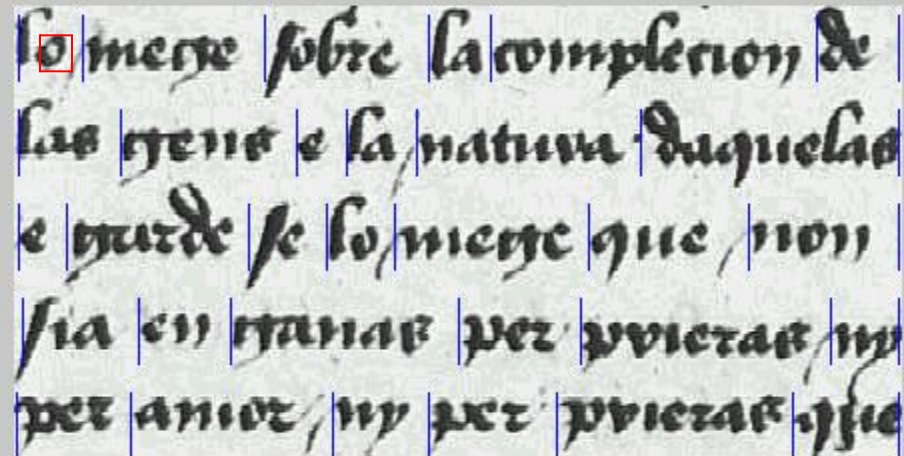 lo mege sobre la complecion de
las gens e la natura daquelas
e garde se lo mege que non
sia en ganas per pvieras ny
per amor ny per pvieras que